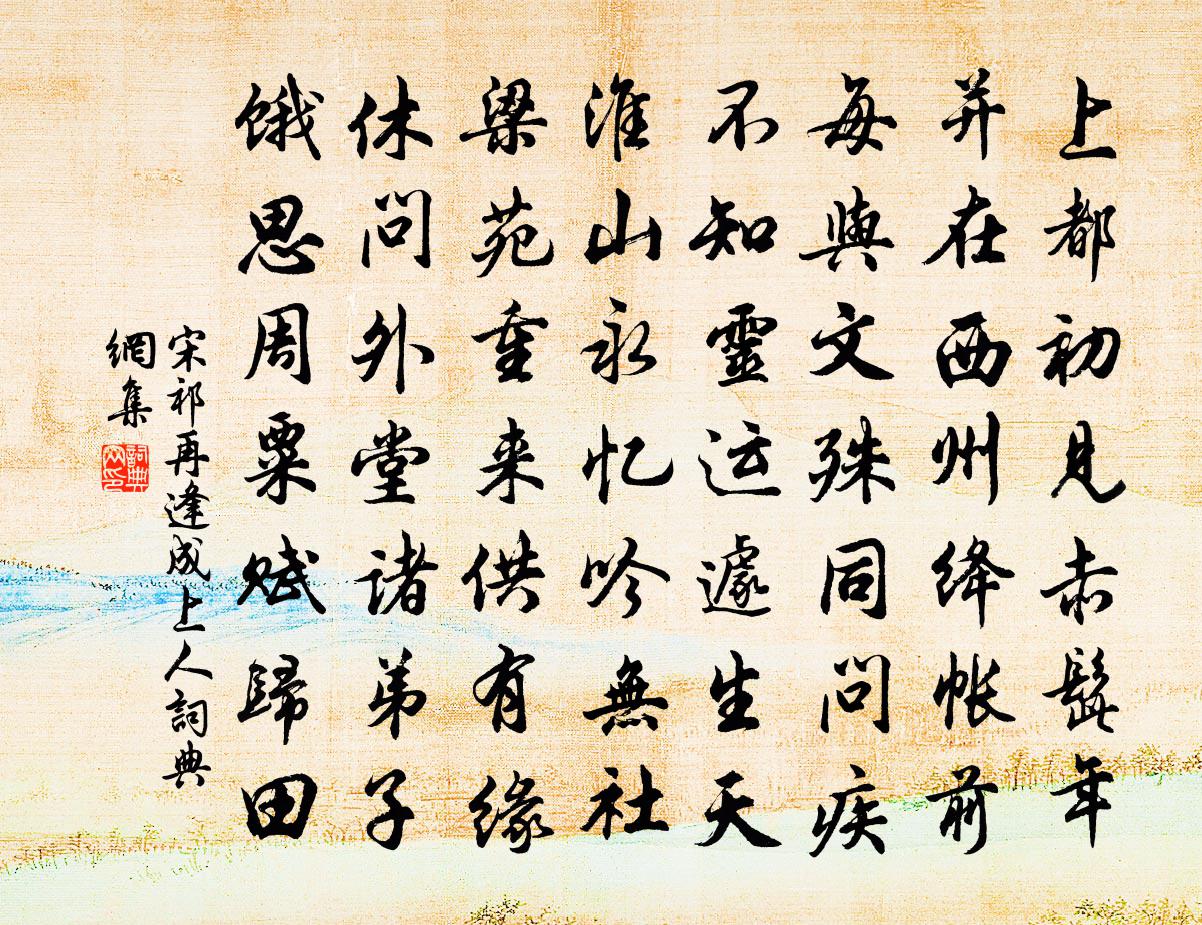 上都初见赤髭年
并在西州绛帐前
每與文殊同问疾
不知靈运遽生天
淮山永忆吟無社
梁苑重来供有缘
休问外堂诸弟子
饿思周粟赋歸田
宋祁再逢成上人詞典
網集
詞典网印